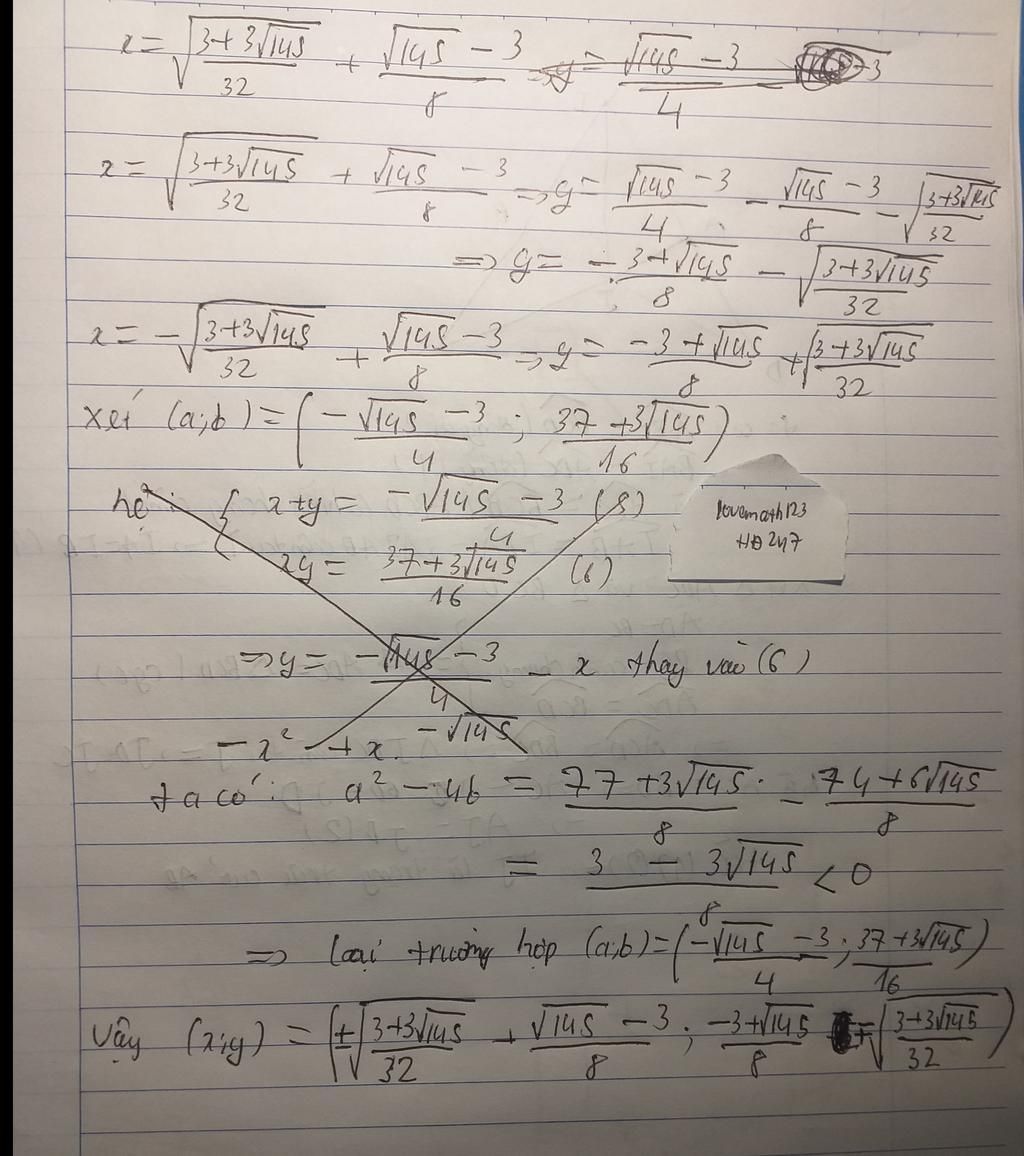 x = √((3+3√145)/32) + (√145 - 3)/8 ⇒ y = (√145 - 3)/4 - 3
x = √((3+3√145)/32) + (√145 - 3)/8 ⇒ y = (√145 - 3)/4 - (√145 - 3)/8 - √((3+3√145)/32)
⇒ y = (-3+√145)/8 - √((3+3√145)/32)
x = -√((3+3√145)/32) + (√145 - 3)/8 ⇒ y = (-3+√145)/8 + √((3+3√145)/32)
xét (a;b) = ((-√145 - 3)/4 ; (37+3√145)/16)
hệ: { x+y = (-√145 - 3)/4 (5)
xy = (37+3√145)/16 (6)
lovemath123
HĐ247
⇒ y = (-√145 - 3)/4 - x thay vào (6)
-x² + x. -√145
ta có: a² - 4b = (77+3√145)/8 - (74+6√145)/8
= (3 - 3√145)/8 < 0
⇒ loại trường hợp (a;b) = ((-√145 - 3)/4 ; (37+3√145)/16)
Vậy (x;y) = (±√((3+3√145)/32) + (√145 - 3)/8 ; (-3+√145)/8 ∓ √((3+3√145)/32))